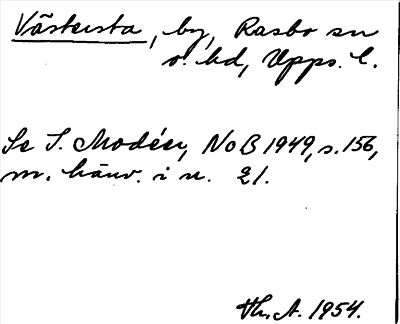 Västersta, by, Rasbo sn
o. hd, Upps. l.
Se I. Modéer, NoB 1949, s. 156,
m. hänv. i n. 21.
Th. A. 1954.